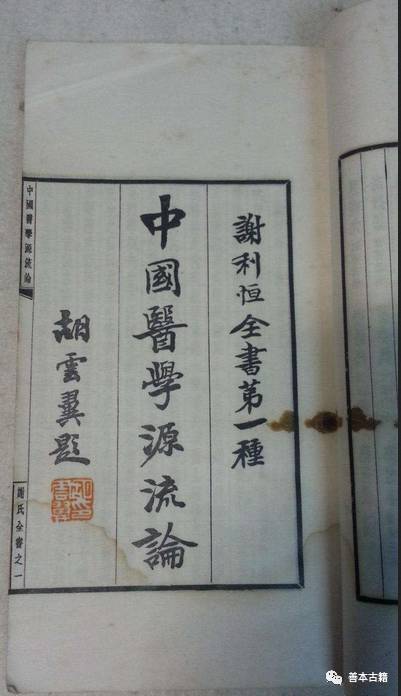 謝利恒全書第一種
中國醫學源流論
胡雲翼題
中國醫學源流論
謝氏全書之一
善本古籍